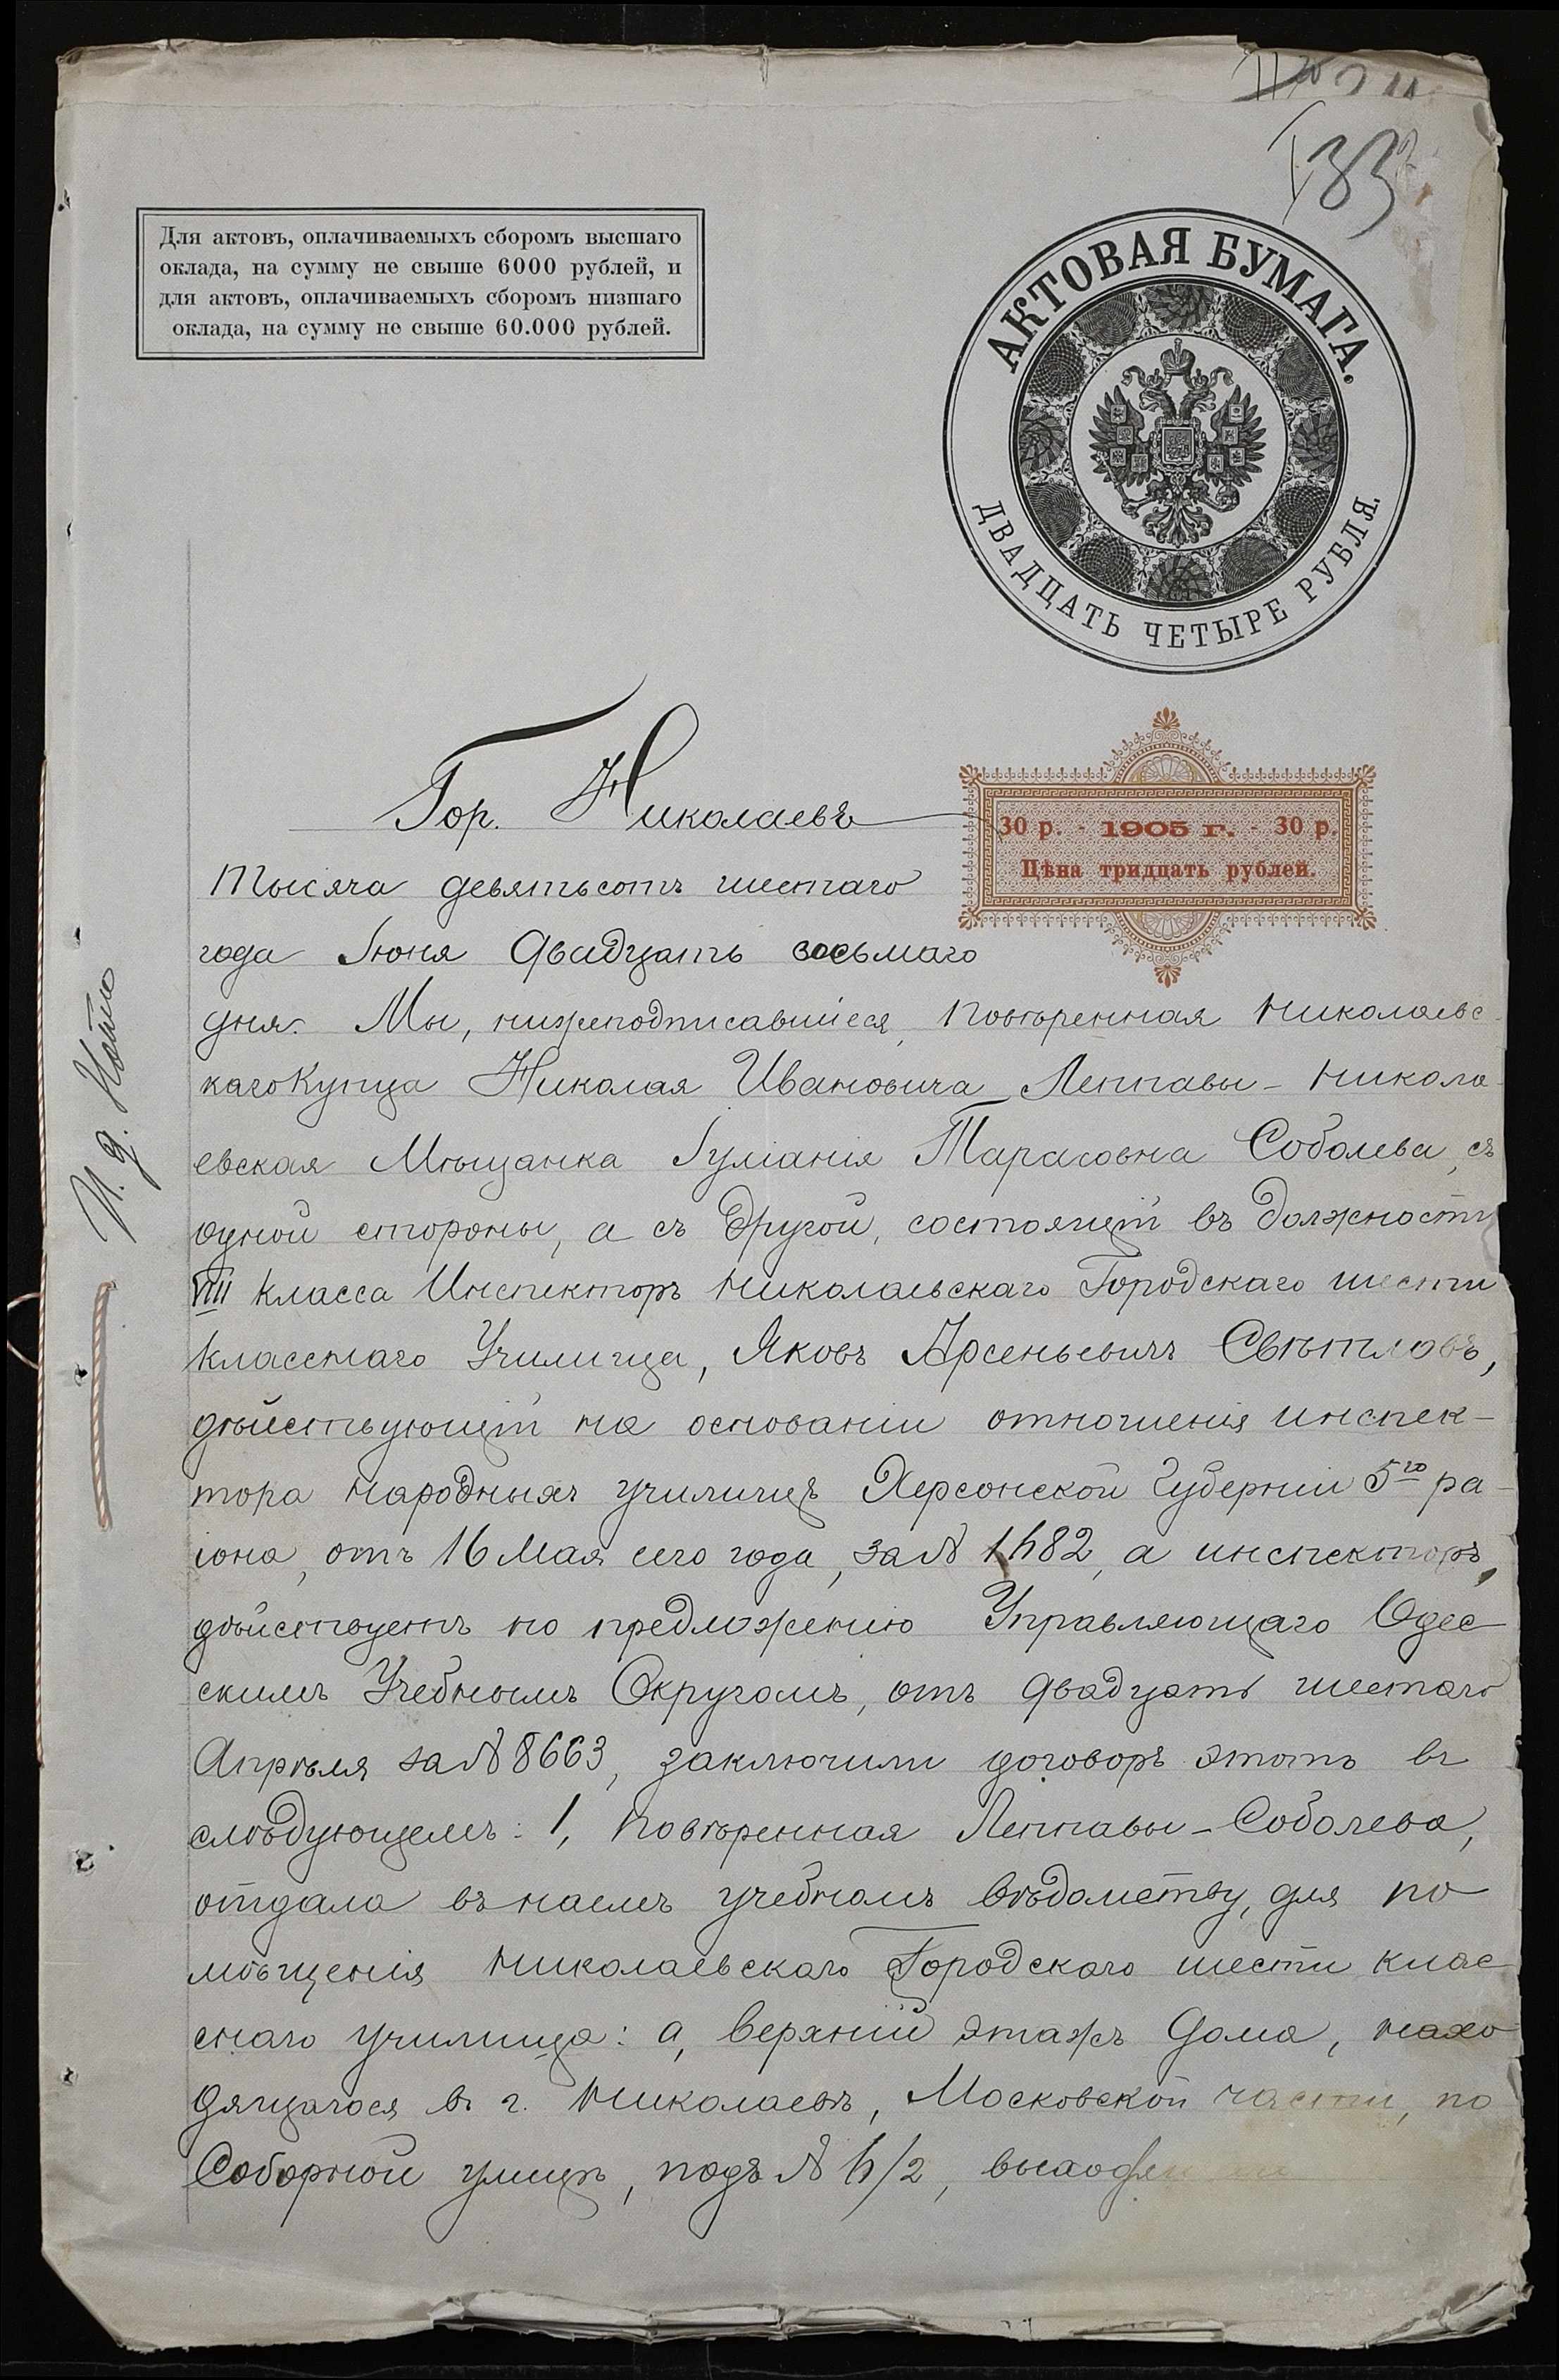 133
Для актовъ, оплачиваемыхъ сборомъ высшаго
оклада, на сумму не свыше 6000 рублей, и
для актовъ, оплачиваемыхъ сборомъ низшаго
оклада, на сумму не свыше 60.000 рублей.
АКТОВАЯ БУМАГА.
ДВАДЦАТЬ ЧЕТЫРЕ РУБЛЯ.
30 р. - 1905 г. - 30 р.
Цѣна тридцать рублей.
Гор. Николаевъ
Тысяча девятьсотъ шестаго
года Іюня двадцать восьмаго
дня. Мы, нижеподписавшіеся, повѣренная Николаевс-
каго Купца Николая Ивановича Леппавы - Никола-
евская Мѣщанка Іуліанія Тарасовна Соболева, съ
одной стороны, а съ другой, состоящій въ должности
VIII класса Инспекторъ Николаевскаго Городскаго шести
класснаго Училища, Яковъ Арсеньевичъ Свѣтловъ,
дѣйствующій на основаніи отношенія инспек-
тора народныхъ училищъ Херсонской Губерніи 5го ра-
іона, отъ 16 Мая сего года, за № 1482, а инспекторъ,
дѣйствуетъ по предложенію Управляющаго Одес-
скимъ Учебнымъ Округомъ, отъ двадцать шестаго
Апрѣля за № 8663, заключили договоръ этотъ въ
слѣдующемъ: 1, повѣренная Леппавы - Соболева,
отдала въ наемъ учебномъ вѣдомству, для по
мѣщенія Николаевскаго Городскаго шести клас
снаго училища: а, верхній этажъ дома, нахо
дящагося въ г. Николаевѣ, Московской части, по
Соборной улицѣ, подъ № 4/2,
И. д. Нот.